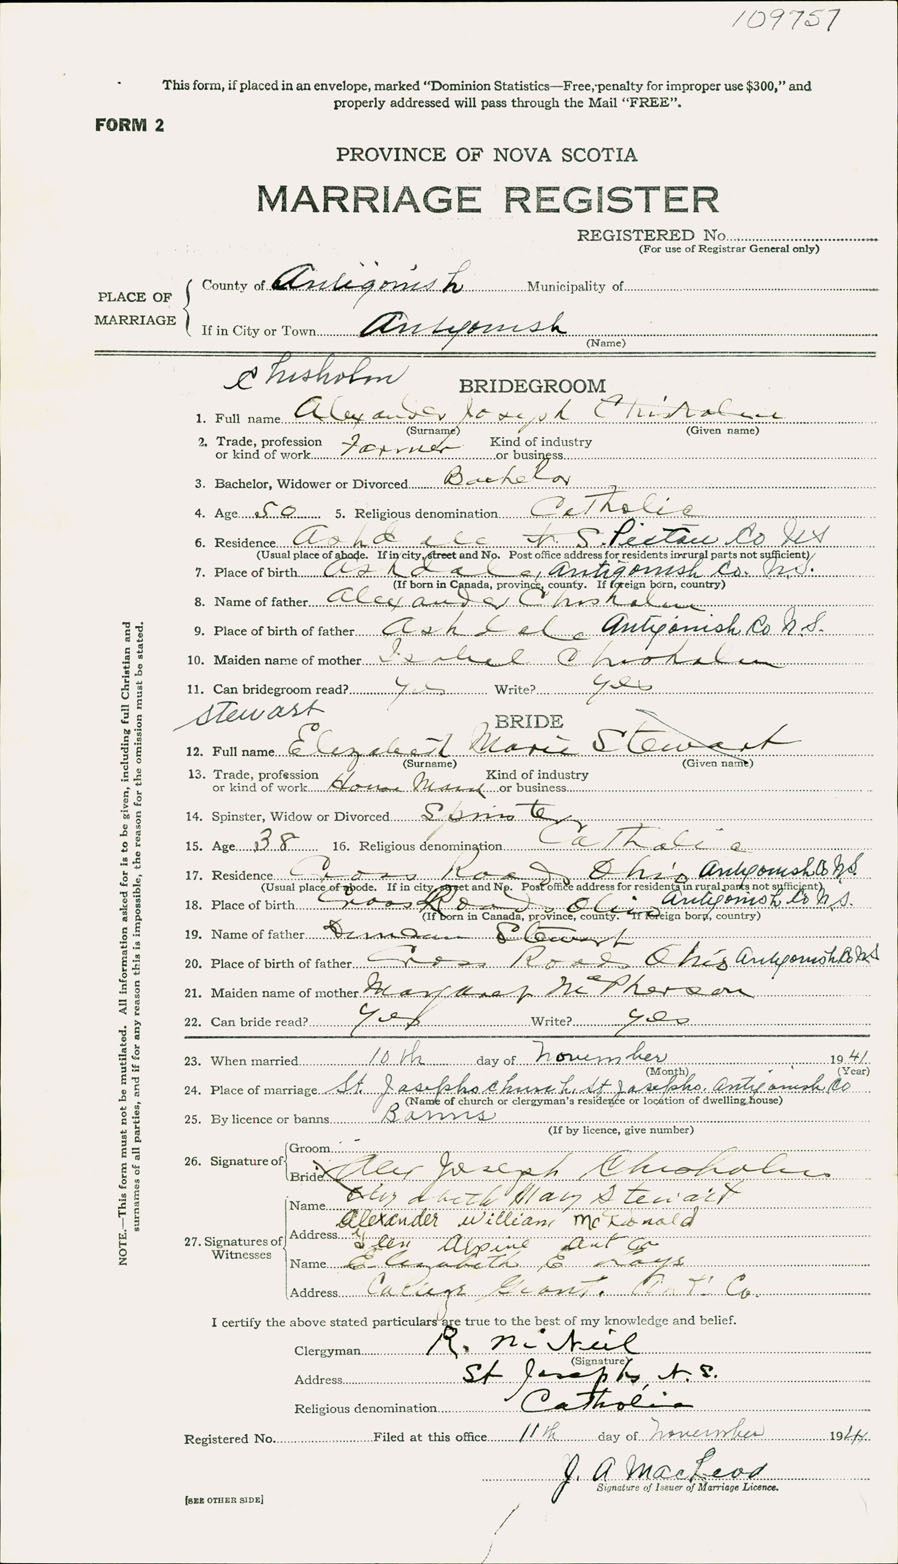 109757
This form, if placed in an envelope, marked “Dominion Statistics—Free, penalty for improper use $300,” and
properly addressed will pass through the Mail “FREE”.
FORM 2
PROVINCE OF NOVA SCOTIA
MARRIAGE REGISTER
REGISTERED No.
(For use of Registrar General only)
PLACE OF MARRIAGE
County of Antigonish Municipality of
If in City or Town Antigonish
(Name)
Chisholm
BRIDEGROOM
1. Full name Alexander Joseph Chisholm
(Surname) (Given name)
2. Trade, profession or kind of work Farmer Kind of industry or business
3. Bachelor, Widower or Divorced Bachelor
4. Age 50 5. Religious denomination Catholic
6. Residence Ashdale N. S. Pictou Co NS
(Usual place of abode. If in city, street and No. Post office address for residents in rural parts not sufficient)
7. Place of birth Ashdale, Antigonish Co. N.S.
(If born in Canada, province, county. If foreign born, country)
8. Name of father Alexander Chisholm
9. Place of birth of father Ashdale Antigonish Co N.S.
10. Maiden name of mother Isabel Chisholm
11. Can bridegroom read? Yes Write? Yes
Stewart
BRIDE
12. Full name Elizabeth Marie Stewart
(Surname) (Given name)
13. Trade, profession or kind of work House Maid Kind of industry or business
14. Spinster, Widow or Divorced Spinster
15. Age 38 16. Religious denomination Catholic
17. Residence Cross Roads Ohio Antigonish Co N.S.
(Usual place of abode. If in city, street and No. Post office address for residents in rural parts not sufficient)
18. Place of birth Cross Roads Ohio Antigonish Co N.S.
(If born in Canada, province, county. If foreign born, country)
19. Name of father Duncan Stewart
20. Place of birth of father Cross Roads Ohio Antigonish Co N.S
21. Maiden name of mother Margaret McPherson
22. Can bride read? Yes Write? Yes
23. When married 10th day of November 1941
(Month) (Year)
24. Place of marriage St. Josephs Church, St Josephs, Antigonish Co
(Name of church or clergyman's residence or location of dwelling house)
25. By licence or banns Banns
(If by licence, give number)
26. Signature of
Groom
Bride Alex Joseph Chisholm
Elizabeth Mary Stewart
27. Signatures of Witnesses
Name Alexander William McDonald
Address Glen Alpine Ant Co
Name Elizabeth E
Address College Grant. Ant Co.
I certify the above stated particulars are true to the best of my knowledge and belief.
Clergyman R. McNeil
(Signature)
Address St Josephs, N.S.
Religious denomination Catholic
Registered No. Filed at this office 11th day of November 194
J. A MacLeod
Signature of Issuer of Marriage Licence.
[SEE OTHER SIDE]
NOTE.—This form must not be mutilated. All information asked for is to be given, including full Christian and
surnames of all parties, and if for any reason this is impossible, the reason for the omission must be stated.